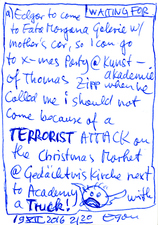 a) Edgar to come WAITING FOR
to Fata Morgana Galerie w/
mother's car, so i can go
to x-mas Party @ Kunst-
of Thomas ZIPP akademie
when he
called me i should not
come because of a
TERRORIST ATTACK on
the Christmas Market
@ Gedächtniskirche next
to Academy with
a Truck!
19 XII 2016 2120